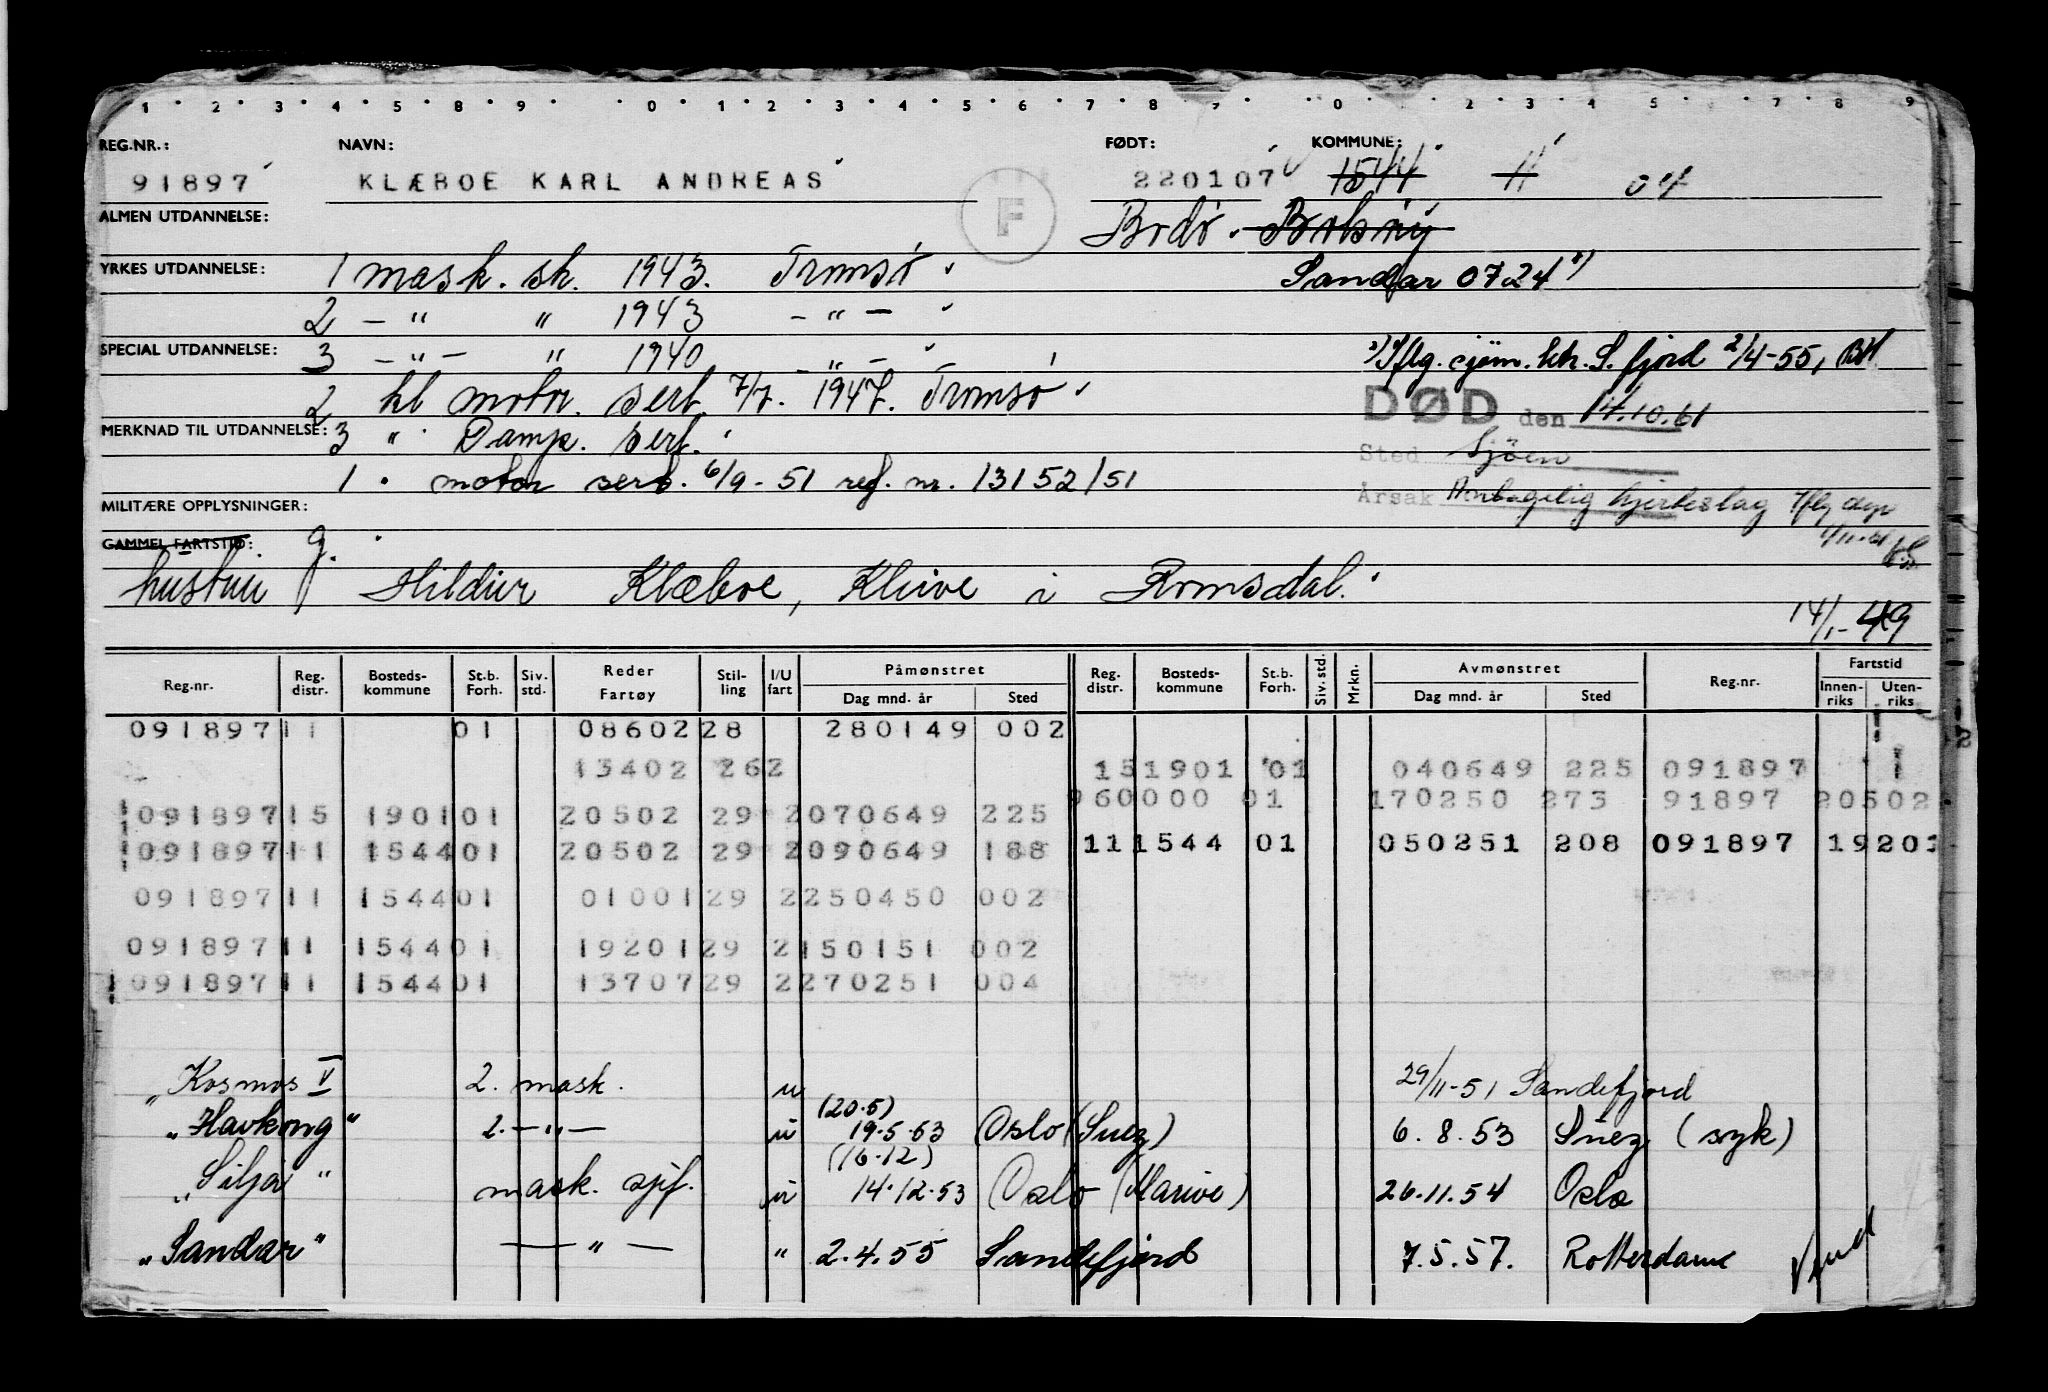 1 2 3 4 5 8 9 0 1 2 3 4 5 6 7 8 9 0 2 3 4 5 7 8 9
REG.NR.: NAVN: FØDT: KOMMUNE:
91897 KLÆBOE KARL ANDREAS 220107 1544 11 04
ALMEN UTDANNELSE: F Bodø. Bolsøy
YRKES UTDANNELSE: 1 mask. sk. 1943. Tromsø Sandar 0724 *)
2 - " " 1943 - " -
SPECIAL UTDANNELSE: 3 - " - " 1940 - " - *) Iflg. sjøm. ktr. S. fjord 2/4-55, BH
2 kl motor. sert. 7/7. 1947. Tromsø DØD den 14.10.61
MERKNAD TIL UTDANNELSE: 3 " Damp. sert. Sted Sjöen
1 . motor sert. 6/9-51 ref. nr. 13152/51 Årsak Antagelig hjerteslag Iflg
MILITÆRE OPPLYSNINGER:
GAMMEL FARTSTID: g.
hustru Hildur Klæboe, Kleive i Romsdal.
14/1-49
Reg.nr. Reg. distr. Bosteds-kommune St.b. Forh. Siv. std. Reder Fartøy Stil-ling I/U fart Påmønstret Dag mnd. år Sted Reg. distr. Bosteds-kommune St.b. Forh. Siv. std. Mrkn. Avmønstret Dag mnd. år Sted Reg.nr. Fartstid Innen-riks Uten-riks
091897 11 01 08602 28 280149 002
13402 262 15 1901 01 040649 225 091897
960000 01 170250 273 91897 20502
091897 15 1901 01 20502 29 2 070649 225
091897 11 1544 01 20502 29 2 090649 188 11 1544 01 050251 208 091897 19201
091897 11 1544 01 01001 29 2 250450 002
091897 11 1544 01 19201 29 2 150151 002
091897 11 1544 01 13707 29 2 270251 004
"Kosmos V 2. mask. u 29/11-51 Sandefjord
"Havkong" 2. - " - u (20.5) 19.5.53 Oslo (Suez) 6.8.53 Suez (syk)
"Silja" mask. sjef. u (16.12) 14.12.53 Oslo 26.11.54 Oslo
"Sandar" - " - " 2.4.55 Sandefjord 7.5.57. Rotterdam Vend